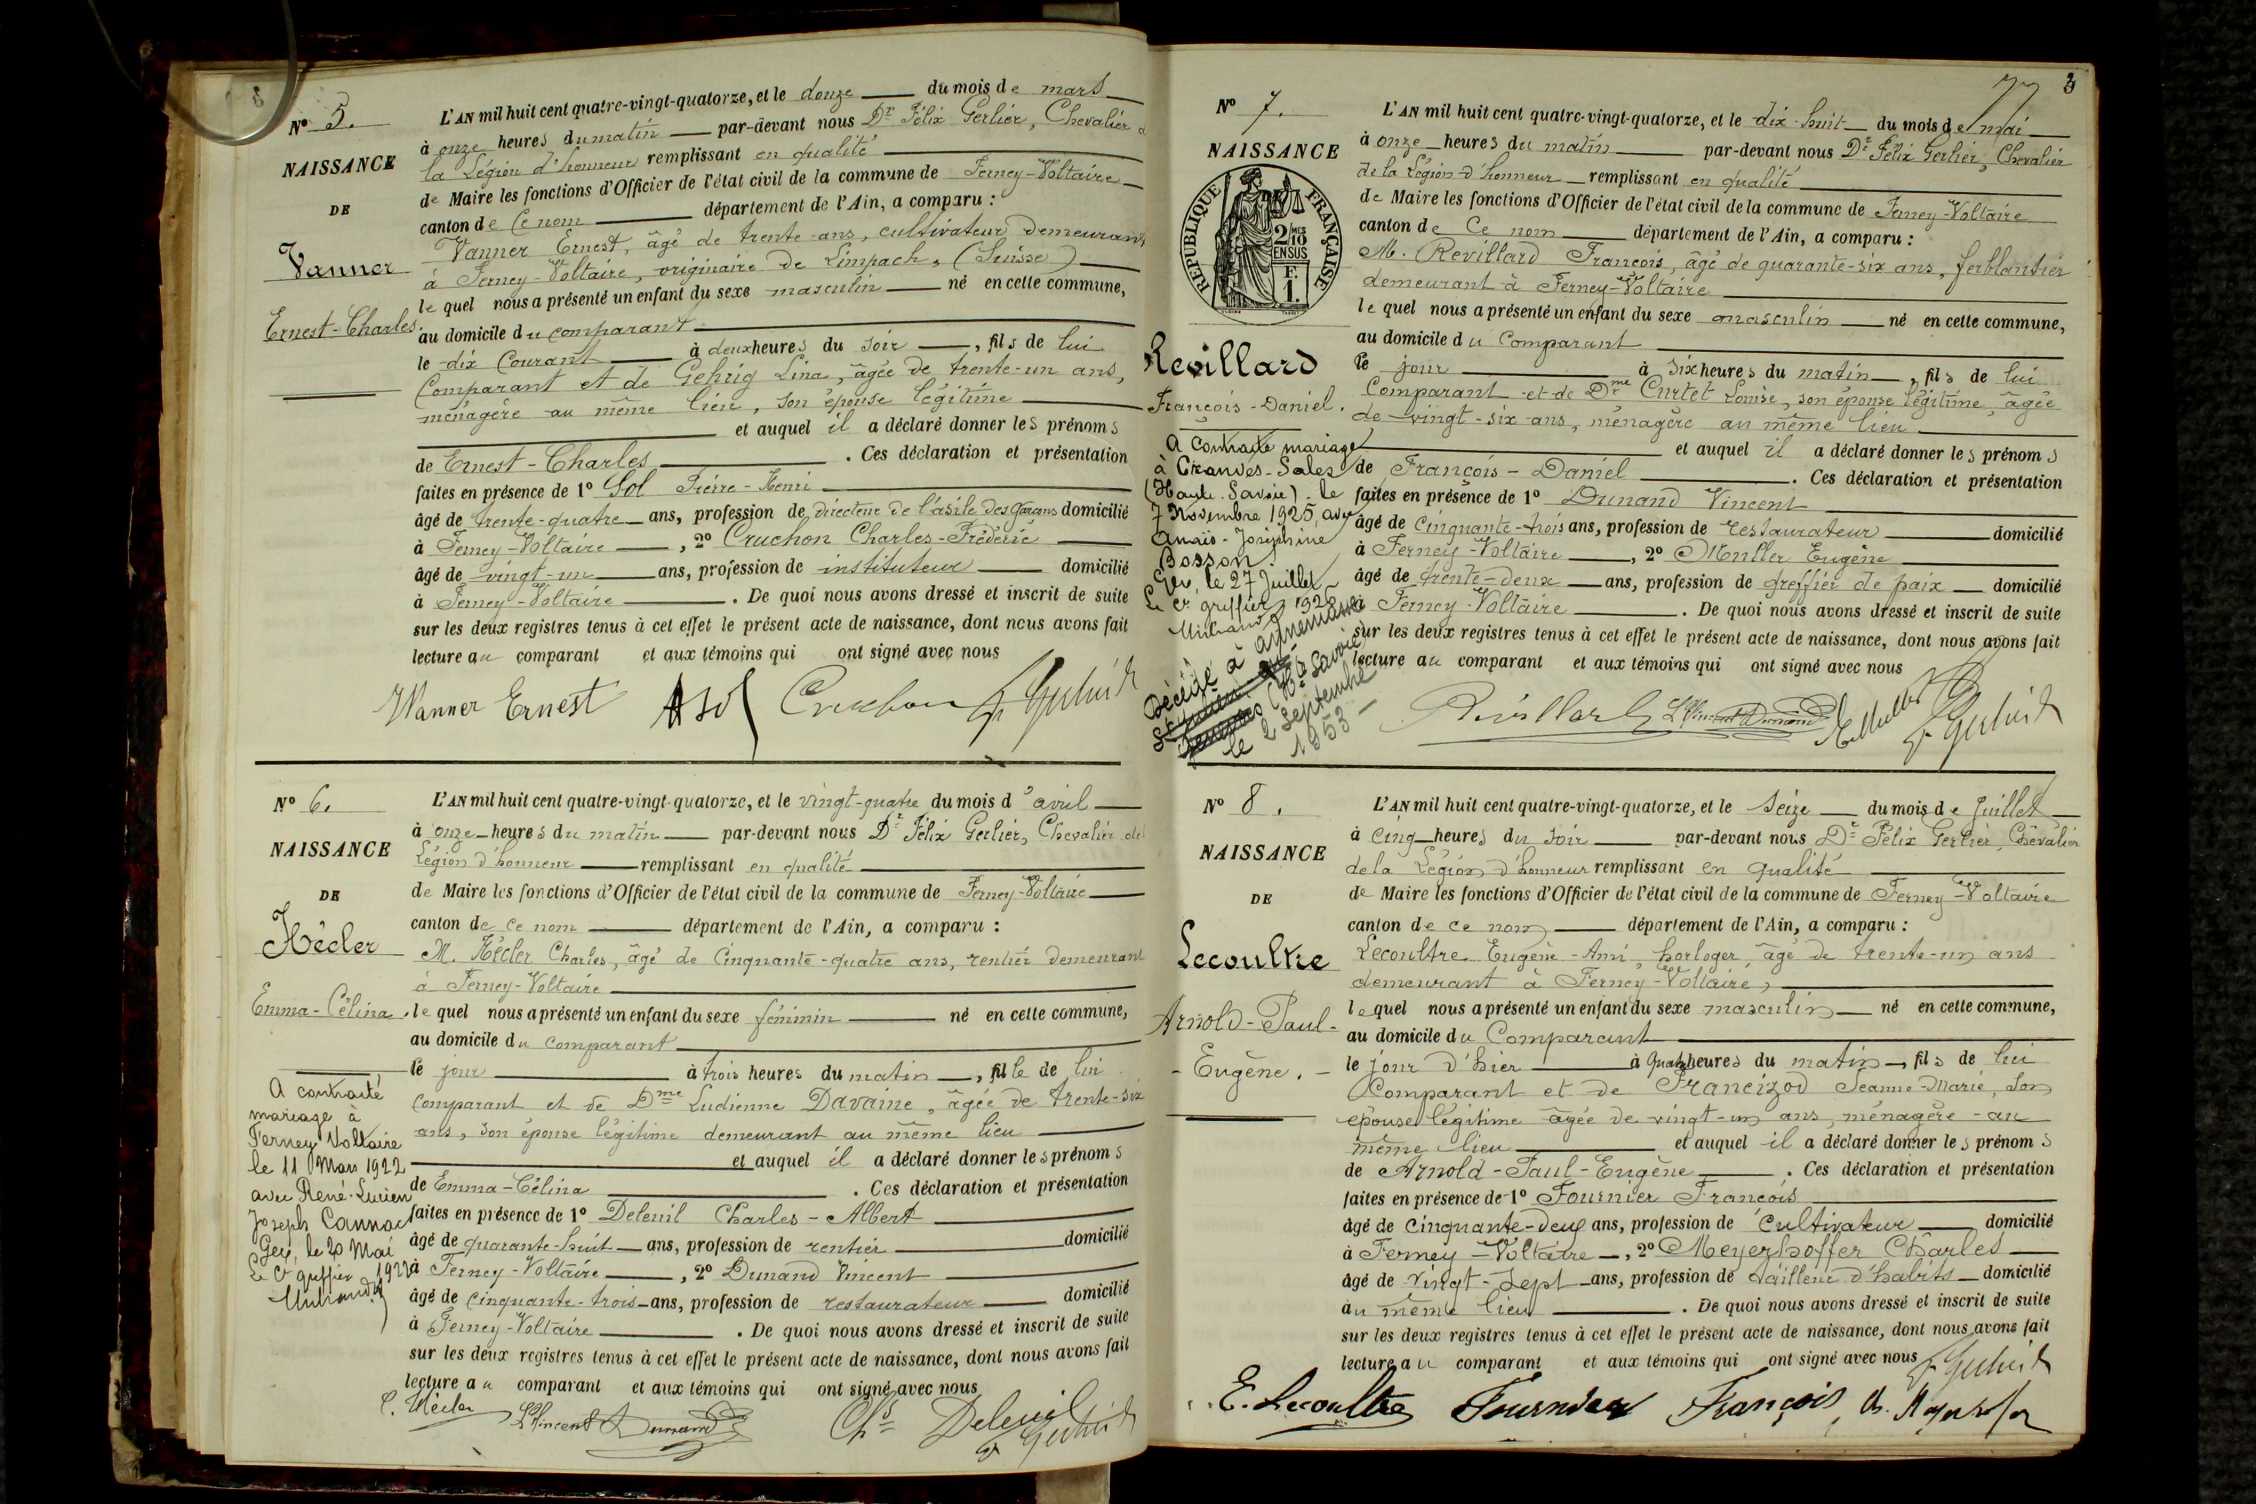 N° 5.
NAISSANCE
DE
Vanner
Ernest-Charles.
L'AN mil huit cent quatre-vingt-quatorze, et le douze du mois de mars
à onze heures du matin par-devant nous Dr Félix Gerlier, Chevalier de
la Légion d'honneur remplissant en qualité
de Maire les fonctions d'Officier de l'état civil de la commune de Ferney-Voltaire
canton de Ce nom département de l'Ain, a comparu :
Vanner Ernest, âgé de trente ans, cultivateur demeurant
à Ferney-Voltaire, originaire de Limpach, (Suisse)
lequel nous a présenté un enfant du sexe masculin né en cette commune,
au domicile du comparant
le dix Courant à deux heures du soir, fils de lui
Comparant et de Gehrig Lina, âgée de trente-un ans,
ménagère au même lieu, son épouse légitime
et auquel il a déclaré donner les prénoms
de Ernest-Charles. Ces déclaration et présentation
faites en présence de 1° Sol Pierre-Henri
âgé de trente-quatre ans, profession de directeur de l'asile des garçons domicilié
à Ferney-Voltaire, 2° Cruchon Charles-Frédéric
âgé de vingt-un ans, profession de instituteur domicilié
à Ferney-Voltaire. De quoi nous avons dressé et inscrit de suite
sur les deux registres tenus à cet effet le présent acte de naissance, dont nous avons fait
lecture au comparant et aux témoins qui ont signé avec nous
Wanner Ernest
N° 6.
NAISSANCE
DE
Hécler
Emma-Célina.
A contracté
mariage à
Ferney Voltaire
le 11 Mars 1922
avec René-Lucien
Joseph Cannac
Gex, le 20 Mai
1922
Le Cr greffier
L'AN mil huit cent quatre-vingt-quatorze, et le vingt-quatre du mois d'avril
à onze heures du matin par-devant nous Dr Félix Gerlier, Chevalier de
Légion d'honneur remplissant en qualité
de Maire les fonctions d'Officier de l'état civil de la commune de Ferney-Voltaire
canton de ce nom département de l'Ain, a comparu :
M. Hécler Charles, âgé de Cinquante-quatre ans, rentier demeurant
à Ferney-Voltaire
lequel nous a présenté un enfant du sexe féminin né en cette commune,
au domicile du comparant
le jour à trois heures du matin, fille de lui
comparant et de Dme Ludienne Davaine, âgée de trente-six
ans, son épouse légitime demeurant au même lieu
et auquel il a déclaré donner les prénoms
de Emma-Célina. Ces déclaration et présentation
faites en présence de 1° Deleuil Charles-Albert
âgé de quarante-huit ans, profession de rentier domicilié
à Ferney-Voltaire, 2° Dunand Vincent
âgé de cinquante-trois ans, profession de restaurateur domicilié
à Ferney-Voltaire. De quoi nous avons dressé et inscrit de suite
sur les deux registres tenus à cet effet le présent acte de naissance, dont nous avons fait
lecture au comparant et aux témoins qui ont signé avec nous
C. Hécler
Vincent Dunand
Chs Deleuil
3
N° 7.
NAISSANCE
RÉPUBLIQUE FRANÇAISE
2/10 MES
EN SUS
F.
1.
Revillard
François-Daniel.
A contracté mariage
à Cranves-Sales
(Haute-Savoie), le
7 Novembre 1925, avec
Anaïs-Joséphine
Bosson
Gex, le 27 Juillet
Le Cr greffier 1926
Décédé à Annemasse
(Hte Savoie)
le 2 Septembre
1953
L'AN mil huit cent quatre-vingt-quatorze, et le dix-huit du mois de mai
à onze heures du matin par-devant nous Dr Félix Gerlier, Chevalier
de la Légion d'honneur remplissant en qualité
de Maire les fonctions d'Officier de l'état civil de la commune de Ferney-Voltaire
canton de Ce nom département de l'Ain, a comparu :
M. Revillard François, âgé de quarante-six ans, ferblantier
demeurant à Ferney-Voltaire
lequel nous a présenté un enfant du sexe masculin né en cette commune,
au domicile du Comparant
le jour à six heures du matin, fils de lui
Comparant et de Dme Curtet Louise, son épouse légitime, âgée
de vingt-six ans, ménagère au même lieu
et auquel il a déclaré donner les prénoms
de François-Daniel. Ces déclaration et présentation
faites en présence de 1° Dunand Vincent
âgé de Cinquante-trois ans, profession de restaurateur domicilié
à Ferney-Voltaire, 2° Muller Eugène
âgé de trente-deux ans, profession de greffier de paix domicilié
à Ferney-Voltaire. De quoi nous avons dressé et inscrit de suite
sur les deux registres tenus à cet effet le présent acte de naissance, dont nous avons fait
lecture au comparant et aux témoins qui ont signé avec nous
Revillard
Vincent Dunand
N° 8.
NAISSANCE
DE
Lecoultre
Arnold-Paul-
Eugène.
L'AN mil huit cent quatre-vingt-quatorze, et le seize du mois de Juillet
à cinq heures du soir par-devant nous Dr Félix Gerlier, Chevalier
de la Légion d'honneur remplissant en qualité
de Maire les fonctions d'Officier de l'état civil de la commune de Ferney-Voltaire
canton de ce nom département de l'Ain, a comparu :
Lecoultre Eugène-Ami, horloger, âgé de trente-un ans
demeurant à Ferney-Voltaire,
lequel nous a présenté un enfant du sexe masculin né en cette commune,
au domicile du Comparant
le jour d'hier à quatre heures du matin, fils de lui
Comparant et de Francizod Jeanne-Marie, son
épouse légitime âgée de vingt-un ans, ménagère au
même lieu et auquel il a déclaré donner les prénoms
de Arnold-Paul-Eugène. Ces déclaration et présentation
faites en présence de 1° Fournier François
âgé de cinquante-deux ans, profession de cultivateur domicilié
à Ferney-Voltaire, 2° Meyerhoffer Charles
âgé de vingt-sept ans, profession de tailleur d'habits domicilié
au même lieu. De quoi nous avons dressé et inscrit de suite
sur les deux registres tenus à cet effet le présent acte de naissance, dont nous avons fait
lecture au comparant et aux témoins qui ont signé avec nous
E. Lecoultre Fournier François